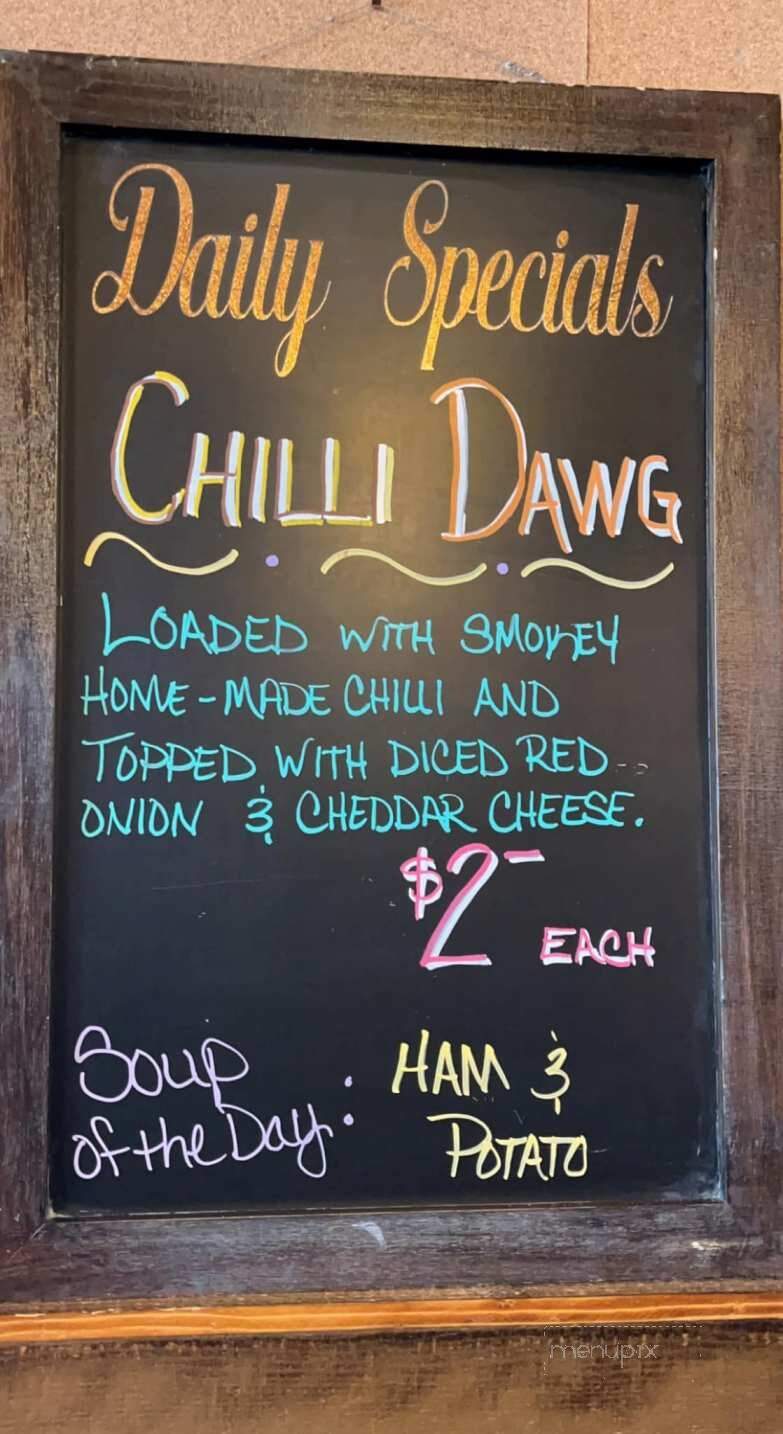 Daily Specials
CHILLI DAWG
LOADED WITH SMOKEY
HOME-MADE CHILLI AND
TOPPED WITH DICED RED
ONION & CHEDDAR CHEESE.
$2- EACH
Soup of the Day: HAM & POTATO
menupix